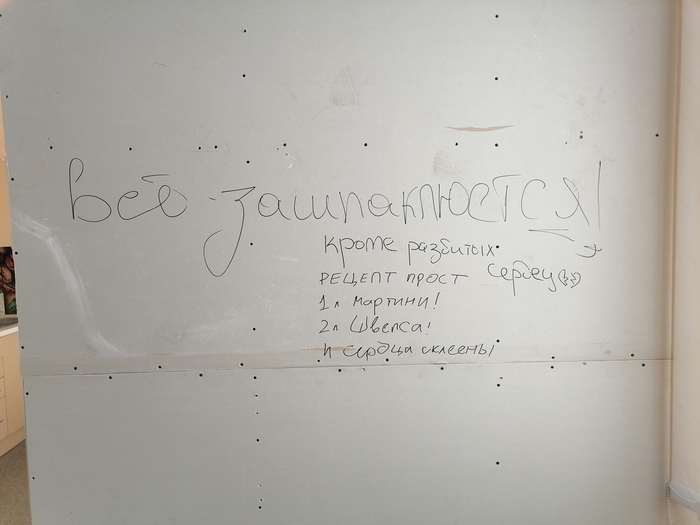 Всё зашпаклюется!
кроме разбитых
сердец
РЕЦЕПТ ПРОСТ
1л мартини!
2л Швепса!
и сердца склеены